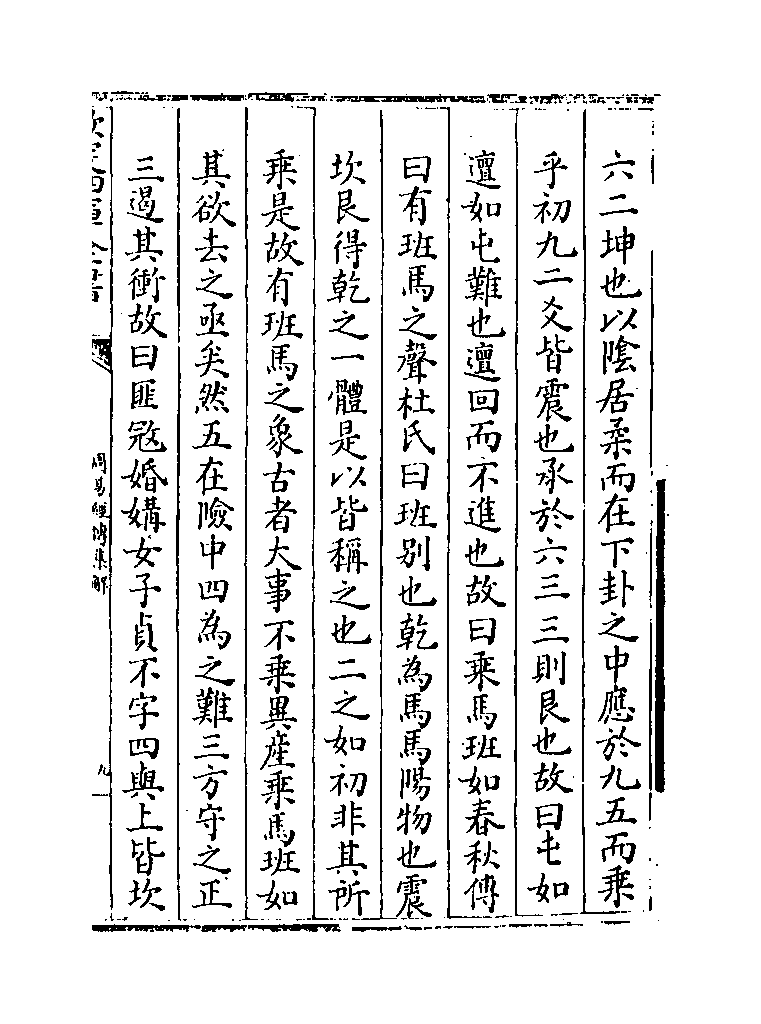 六二坤也以陰居柔而在下卦之中應於九五而乘
乎初九二爻皆震也承於六三三則艮也故曰屯如
邅如屯難也邅回而不進也故曰乘馬班如春秋傳
曰有班馬之聲杜氏曰班別也乾為馬馬陽物也震
坎艮得乾之一體是以皆稱之也二之如初非其所
乘是故有班馬之象古者大事不乘異産乘馬班如
其欲去之亟矣然五在險中四為之難三方守之正
三遏其衝故曰匪冦婚媾女子貞不字四與上皆坎
欽定四庫全書
周易經傳集解
九